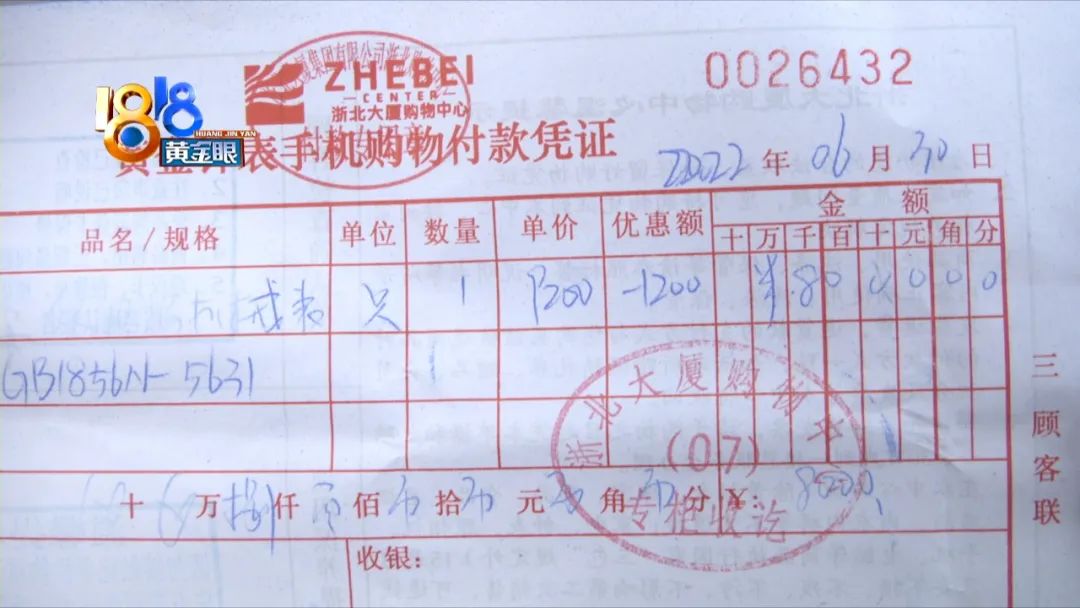 ZHEBEI
CENTER
浙北大厦购物中心
0026432
1818
HUANG JIN YAN
黄金眼
表手机购物付款凭证
2022 年 06 月 30 日
品名/规格 单位 数量 单价 优惠额 金额
十 万 千 百 十 元 角 分
戒 只 1 -1200 ¥ 8 0 0 0 0 0
GB1856N-5631 1
十 万 捌 仟 零 佰 拾 元 角 分 ¥: 8000
浙北大厦购物中
(07)
专柜收讫
收银:
三 顾客联